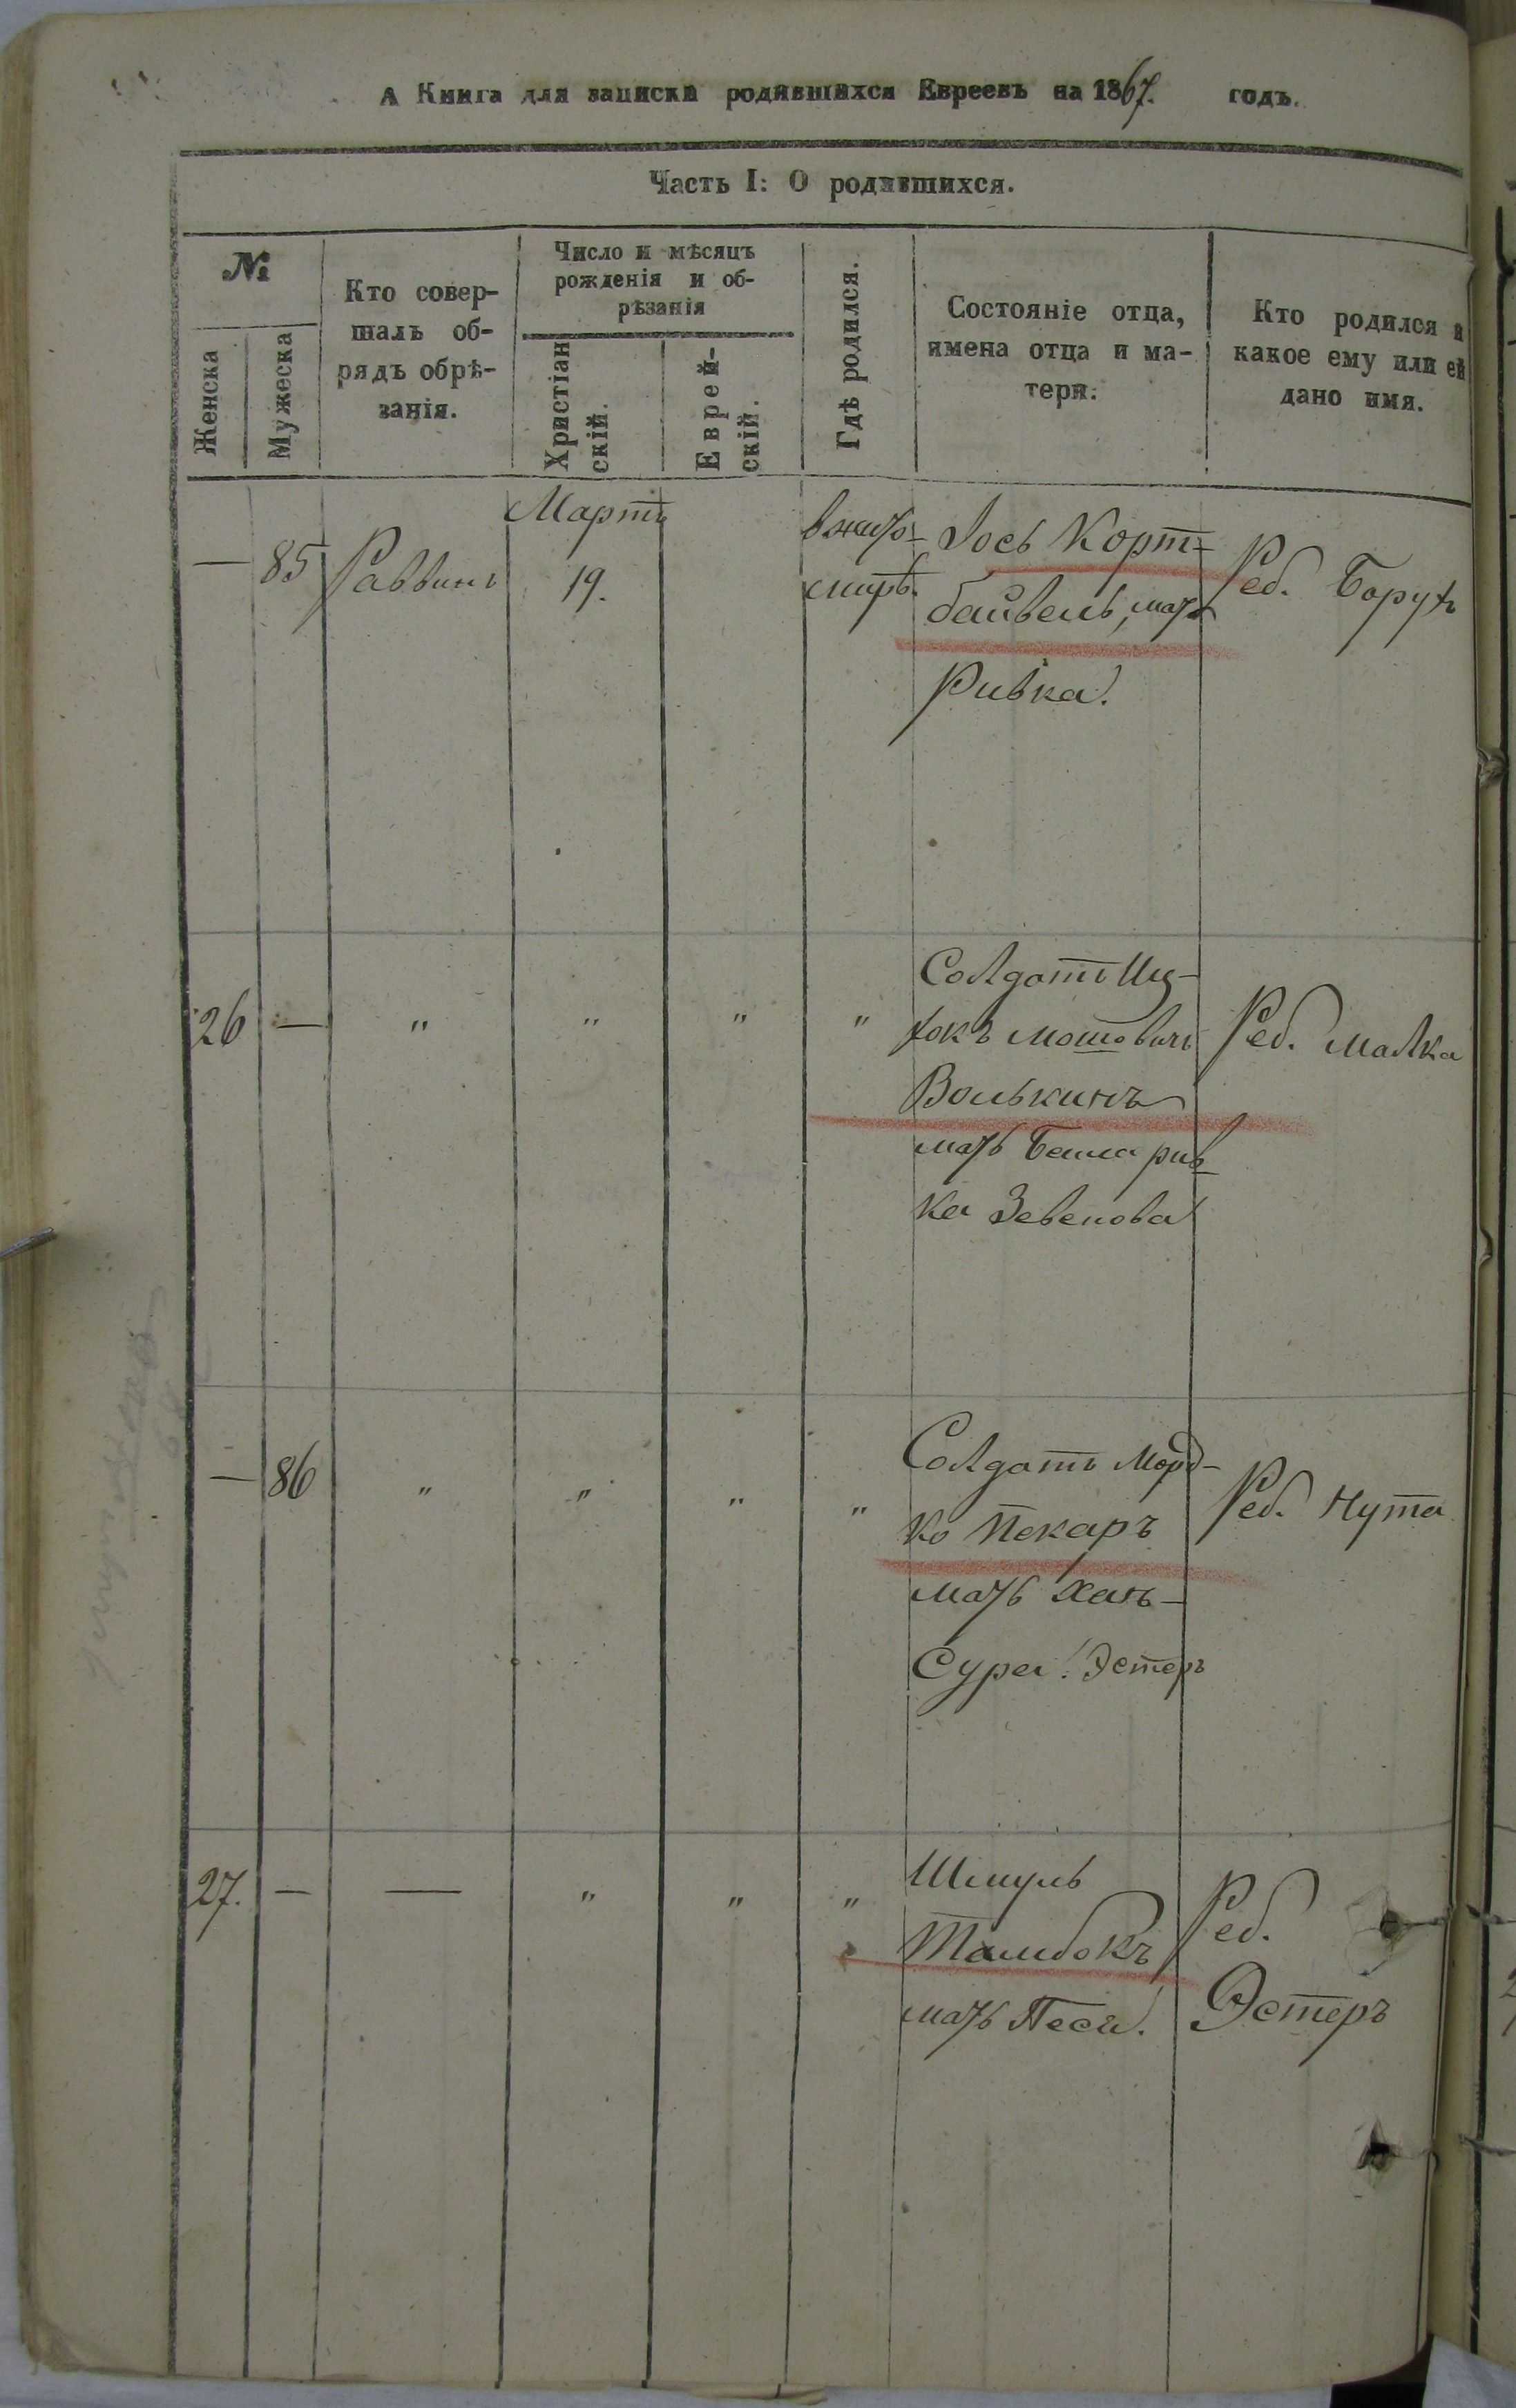 А Книга для записки родившихся Евреевъ на 1867. годъ.
Часть I: О родившихся.
№
Женска
Мужеска
Кто совер-
шалъ об-
рядъ обрѣ-
занія.
Число и мѣсяцъ
рожденія и об-
рѣзанія
Христіан
скій.
Еврей-
скій.
Гдѣ родился.
Состояніе отца,
имена отца и ма-
тери.
Кто родился и
какое ему или ей
дано имя.
— 85 Раввинъ
Мартъ
19.
в жито-
мирѣ.
Іось Корт-
байвель, мать
Ривка.
Реб. Борухъ
26 — " " " "
Солдатъ Иц-
хокъ Мошовичъ
Волькинъ
мать Бейла рив-
ка Зевелова
Реб. Малка
— 86 " " " "
Солдатъ Морд-
ко Пекаръ
мать Хань-
Сура. Эстеръ
Реб. Нута
27. — — " " "
Шмуль
Талибокъ
мать Песя.
Реб.
Эстеръ